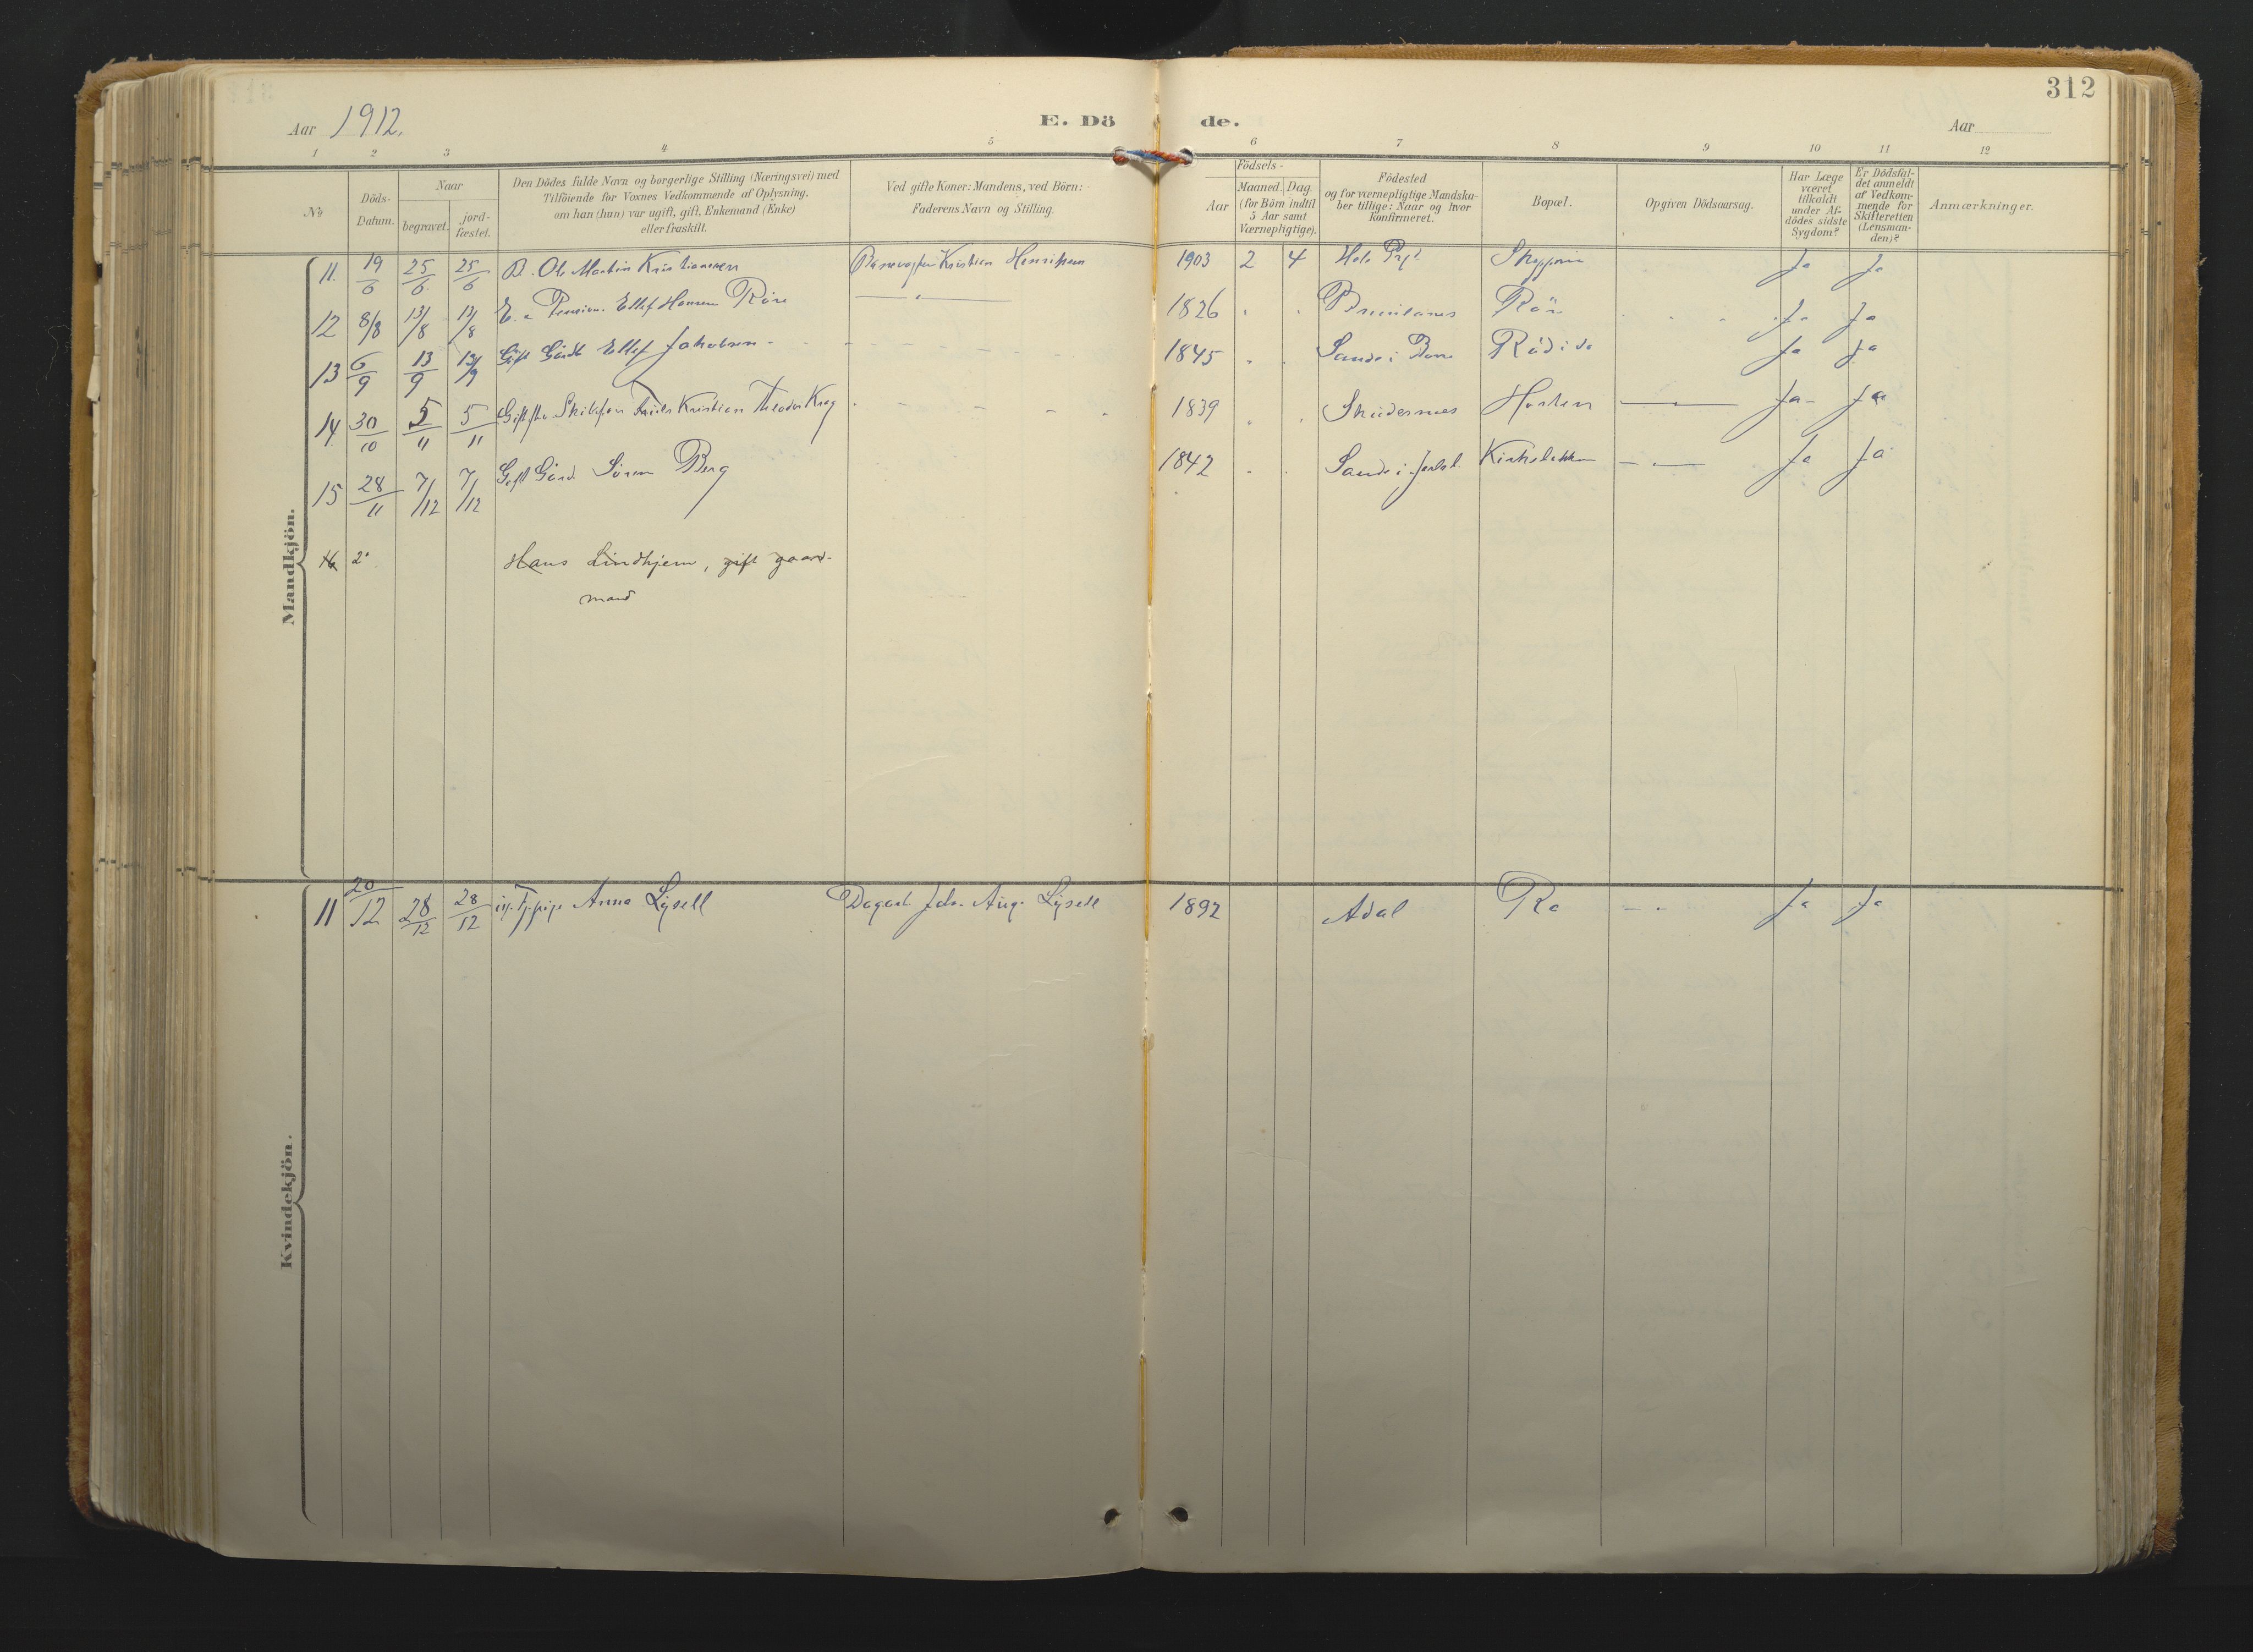 312
Aar 1912. E. Dö de. Aar
1 2 3 4 5 6 7 8 9 10 11 12
№
Döds-
Datum.
Naar
begravet.
jord-
fæstet.
Den Dödes fulde Navn og borgerlige Stilling (Næringsvei) med
Tilföiende for Voxnes Vedkommende af Oplysning,
om han (hun) var ugift, gift, Enkemand (Enke)
eller fraskilt.
Ved gifte Koner: Mandens, ved Börn:
Faderens Navn og Stilling.
Födsels-
Aar
Maaned. Dag.
(for Börn indtil
5 Aar samt
Værnepligtige).
Födested
og for værnepligtige Mandska-
ber tillige: Naar og hvor
Konfirmeret.
Bopæl.
Opgiven Dödsaarsag.
Har Læge
været
tilkaldt
under Af-
dödes sidste
Sygdom?
Er Dödsfal-
det anmeldt
af Vedkom-
mende for
Skifteretten
(Lensman-
den)?
Anmærkninger.
Mandkjön.
11. 19/6 25/6 25/6 B. Ole Martin Kristiansen Banevogter Kristian Henriksen 1903 2 4 Hole Prgt Skoppum Ja Ja
12 8/8 13/8 13/8 E. Ellef Hansen Röre 1826 " " Brunlanes Rör Ja Ja
13 6/9 13/9 13/9 Gift Gårdb Ellef Jakobsen 1845 " " Sande i Borre Ja Ja
14 30/10 5/11 5/11 Kristian Theodor Krog 1839 " " Skudesnes Horten Ja Ja
15 28/11 7/12 7/12 Gift Gård. Sören Berg 1842 " " Sande i Jarlsb. Kirkebakken Ja Ja
16 2 Hans Lindhjem, gift gaard-
mand
Kvindekjön.
11 20/12 28/12 28/12 ug. Tj.pige Anna Lysell Dagarb. Joh. Aug. Lysell 1892 Adal Ra Ja Ja